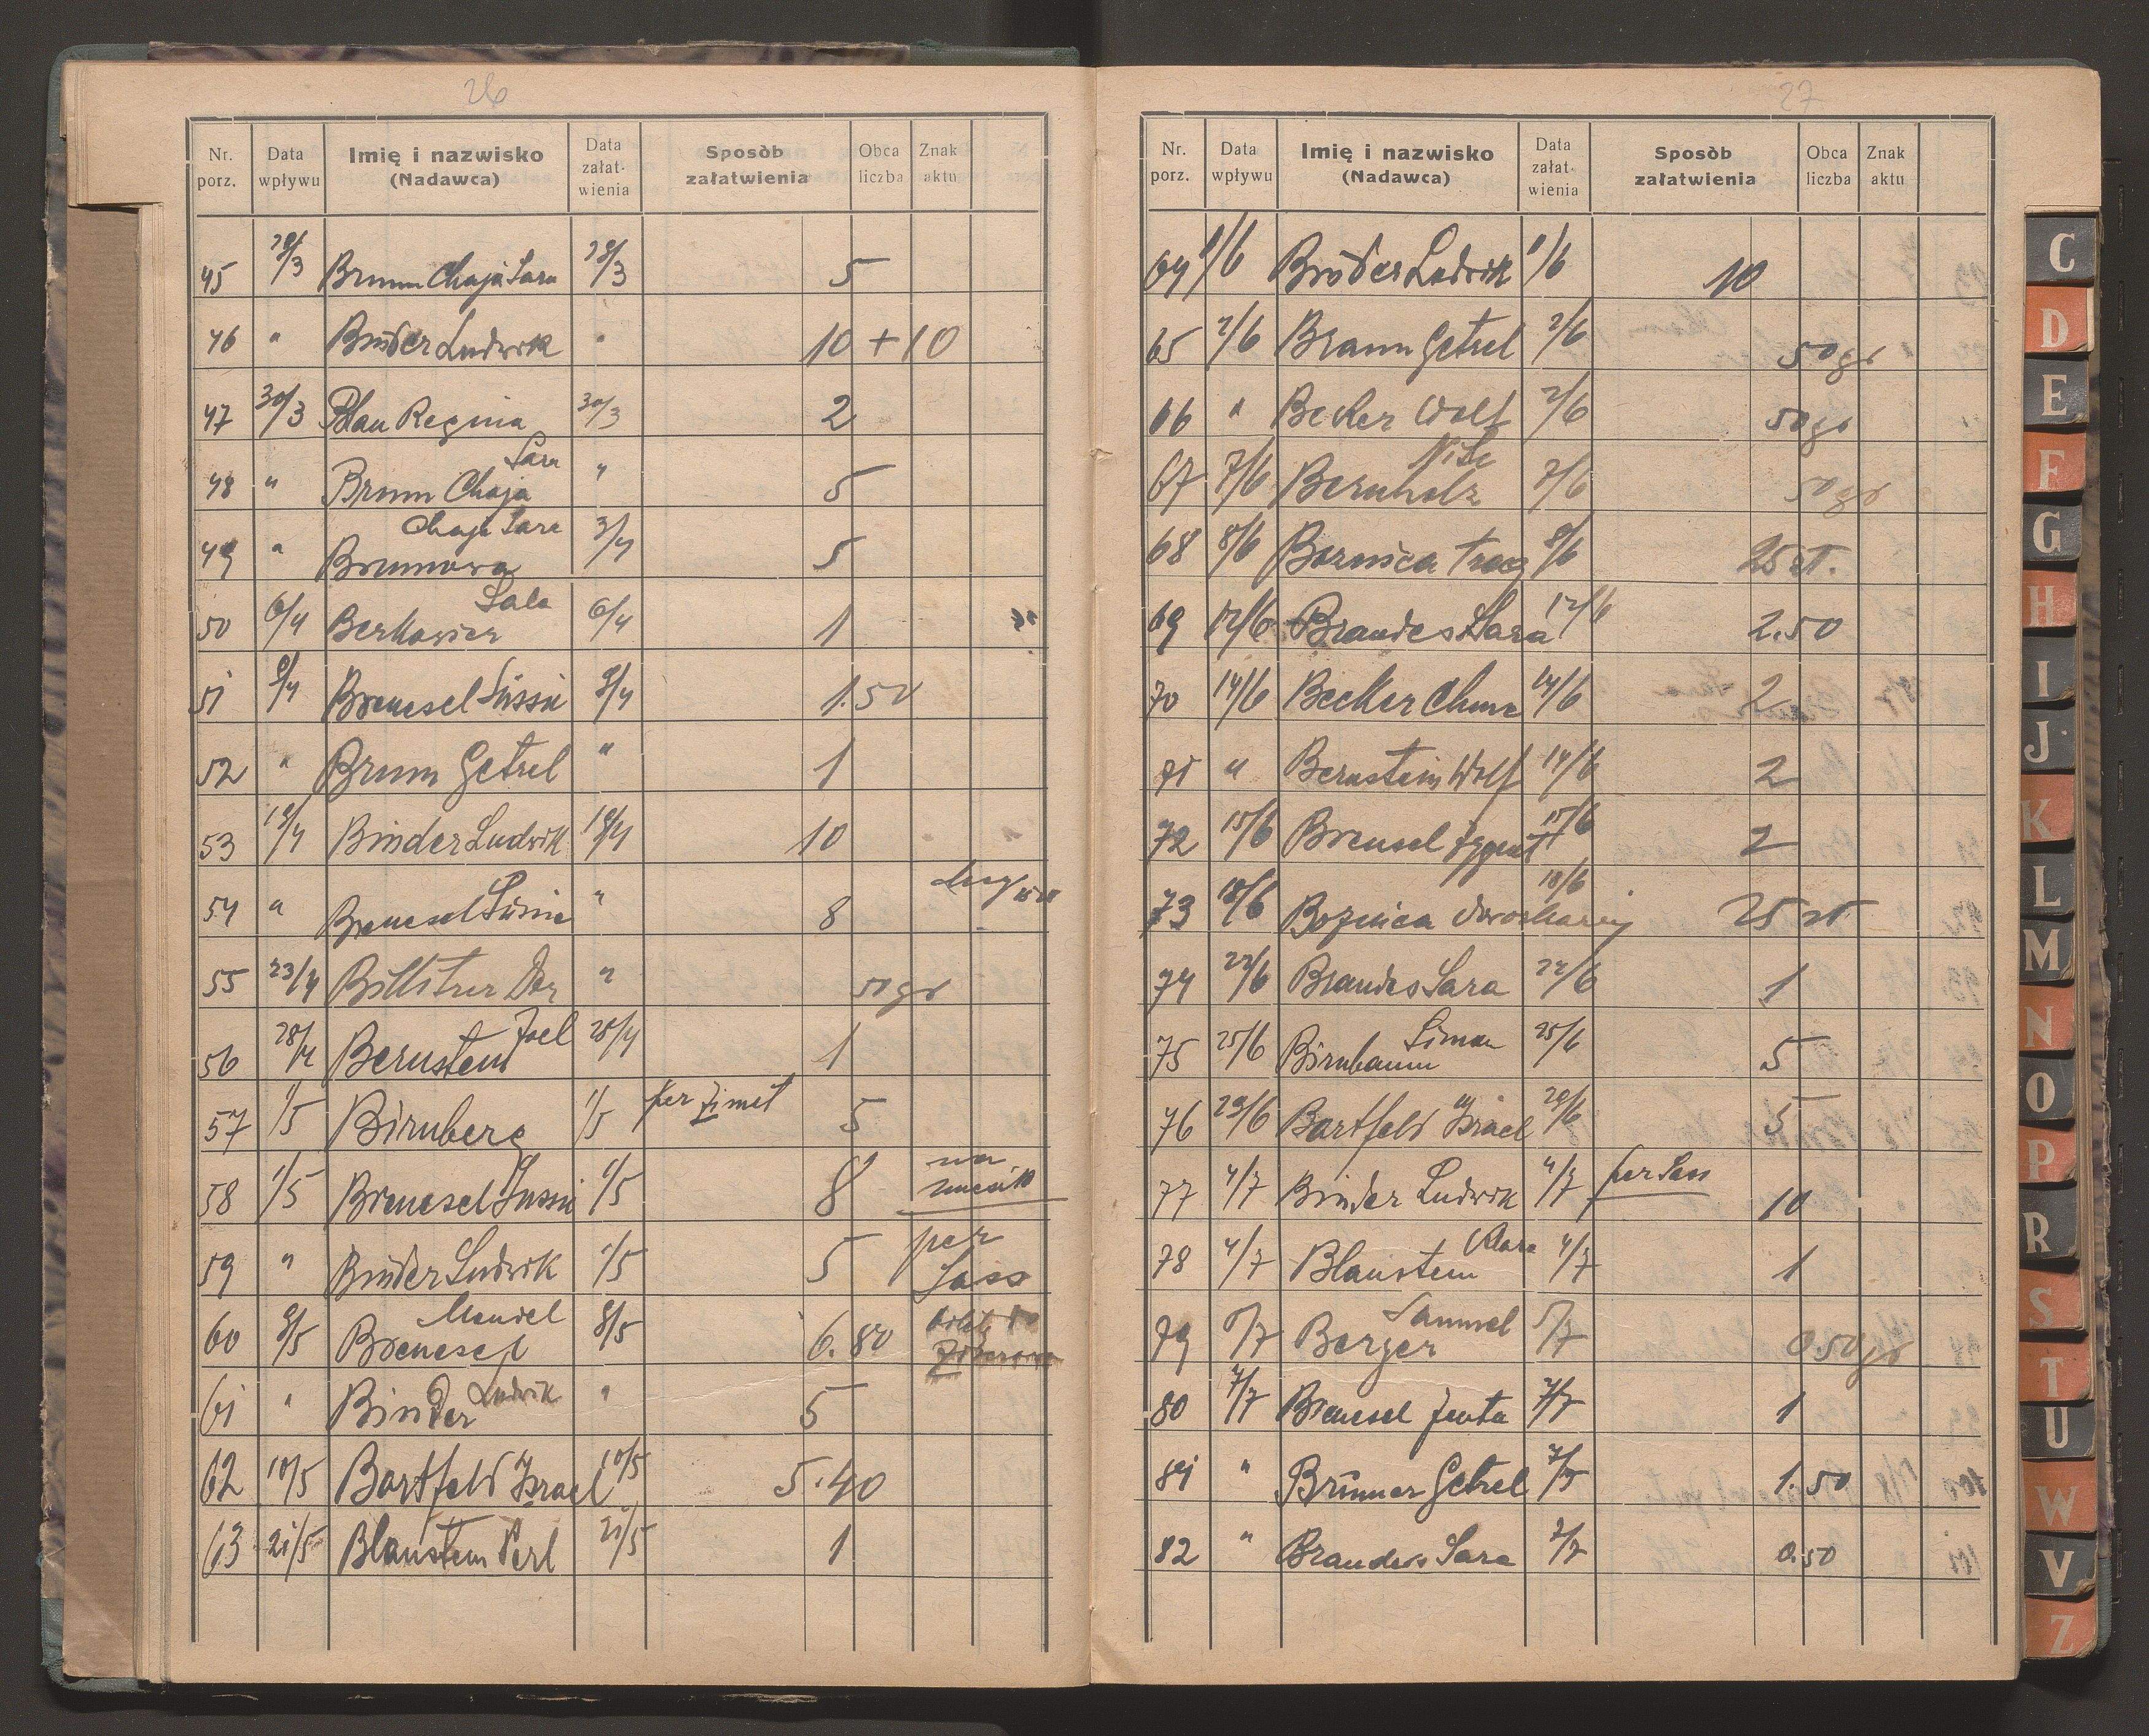 26
Nr. porz. Data wpływu Imię i nazwisko (Nadawca) Data załat-wienia Sposòb załatwienia Obca liczba Znak aktu
45 28/3 Brunn Chaja Sara 28/3 5
46 " Binder Ludwik " 10 + 10
47 30/3 Blau Regina 30/3 2
48 " Brunn Chaja Sara " 5
49 " Brunnowa Chaja Sara 3/4 5
50 6/4 Berkowicz Sala 6/4 1
51 8/4 Brenesel Süssie 8/4 1.50
52 " Brunn Getzel " 1
53 18/4 Binder Ludwik 18/4 10
54 " Brenesel Süssie " 8
55 23/4 Billitzer " 50 gr
56 28/4 Bernstein Joel 28/4 1
57 1/5 Birnberg 1/5 per Zimet 5
58 1/5 Brenesel Süssie 1/5 8 na
59 " Binder Ludwik 1/5 5 per Sass
60 8/5 Brenesel Mendel 8/5 6.80
61 " Binder Ludwik " 5
62 10/5 Bartfeld Israel 10/5 5.40
63 21/5 Blaustein Perl 21/5 1
27
Nr. porz. Data wpływu Imię i nazwisko (Nadawca) Data załat-wienia Sposòb załatwienia Obca liczba Znak aktu
64 1/6 Binder Ludwik 1/6 10
65 2/6 Braun Getzel 2/6 50 gr
66 " Becker Wolf 2/6 50 gr
67 7/6 Bernholz 7/6 50 gr
68 8/6 Boznica 8/6 25 zł.
69 12/6 Brandes Sara 12/6 2.50
70 14/6 Becker Chune 14/6 2
71 " Bernstein Wolf 14/6 2
72 15/6 Brensel 15/6 2
73 18/6 Boznica 18/6 25 zł
74 22/6 Brandes Sara 22/6 1
75 25/6 Birnbaum Simon 25/6 5
76 29/6 Bartfeld Israel 29/6 5
77 4/7 Binder Ludwik 4/7 per Sass 10
78 4/7 Blaustein Klara 4/7 1
79 5/7 Berger Sammel 5/7 0.50 gr
80 7/7 Brenesel Jenta 7/7 1
81 " Brünner Getzel 7/7 1.50
82 " Brandes Sara 7/7 0.50
C
D
E
F
G
H
I
J
K
L
M
N
O
P
R
S
T
U
W
V
Z